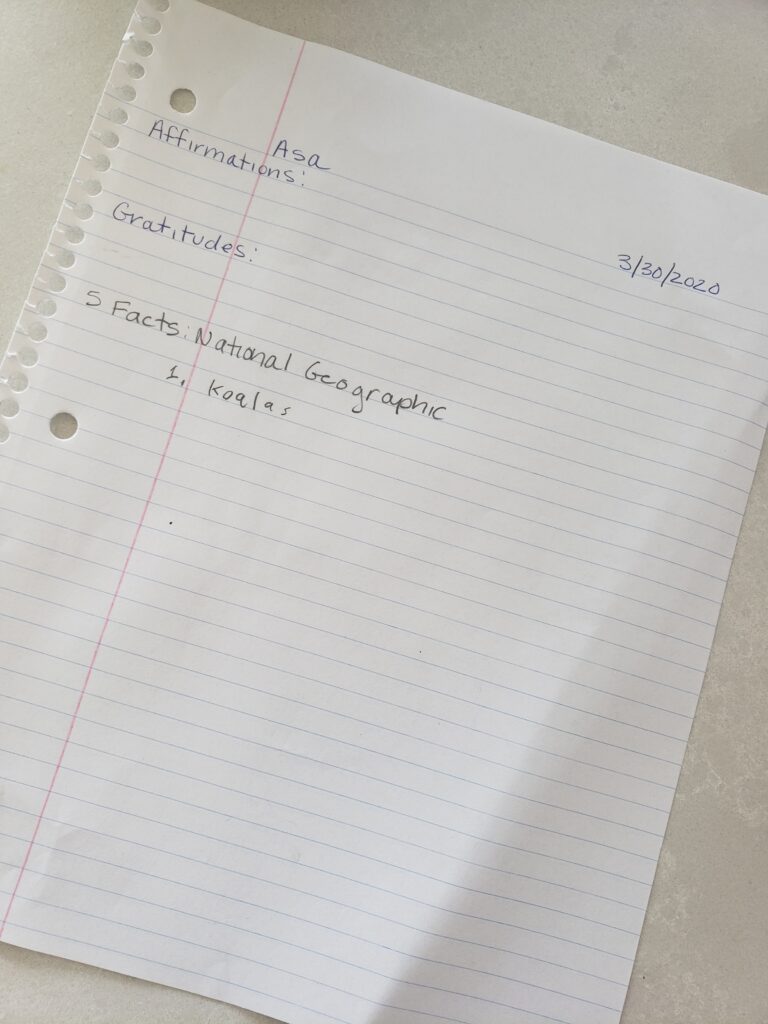 Asa
Affirmations:
Gratitudes:
3/30/2020
5 Facts: National Geographic
1. Koalas